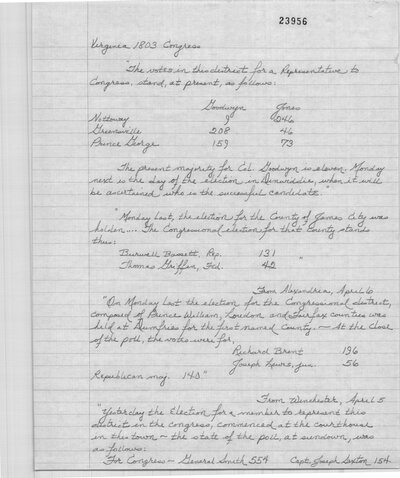 23956
Virginia 1803 Congress
"The votes in this district for a Representative to
Congress, stand, at present, as follows:
Goodwyn Jones
Nottoway 9 246
Greensville 208 46
Prince George 159 73
The present majority for Col. Goodwyn is eleven. Monday
next is the day of the election in Dinwiddie, when it will
be ascertained who is the successful candidate."
"Monday last, the election for the County of James City was
holden... The Congressional election for that County stands
thus:
Burwell Bassett, Rep. 131
Thomas Griffin, Fed. 42 "
From Alexandria, April 6
"On Monday last the election for the Congressional district,
composed of Prince William, Loudon and Fairfax counties was
held at Dumfries for the first named County. — At the close
of the poll, the votes were for,
Richard Brent 196
Joseph Lewis, jun. 56
Republican maj. 140"
From Winchester, April 5
"Yesterday the Election for a member to represent this
district in the Congress, commenced at the courthouse
in this town — the state of the poll, at sundown, was
as follows:
"For Congress — General Smith 554 Capt. Joseph Sexton 154